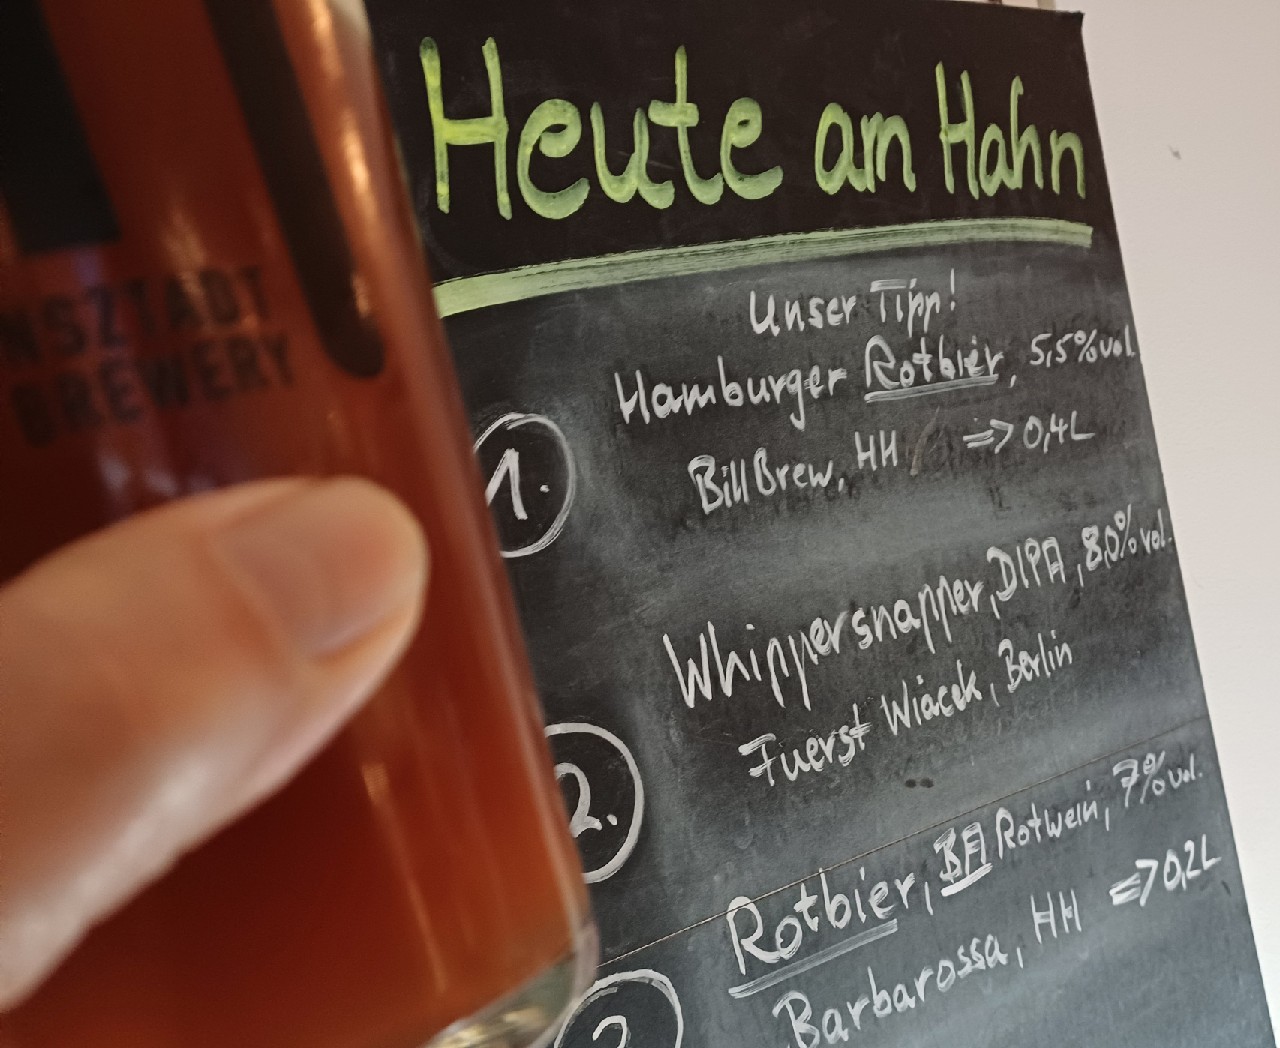 Heute am Hahn
Unser Tipp!
1.
Hamburger Rotbier, 5,5%vol.
BillBrew, HH => 0,4L
2.
Whippersnapper, DIPA, 8,0% vol.
Fuerst Wiacek, Berlin
3.
Rotbier, BA Rotwein, 7% vol.
Barbarossa, HH => 0,2L
NSZTADT
BREWERY